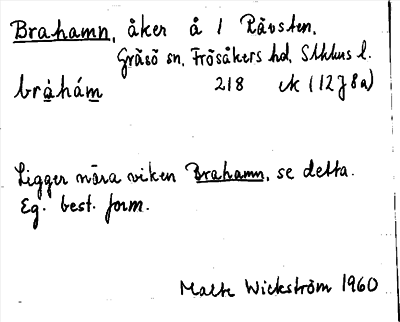 Brahamn, åker å 1 Rävsten,
Gräsö sn, Frösåkers hd, Sthlms l.
bråhám 218 ek (12J8a)
Ligger nära viken Brahamn, se detta.
Eg. best. form.
Malte Wickström 1960